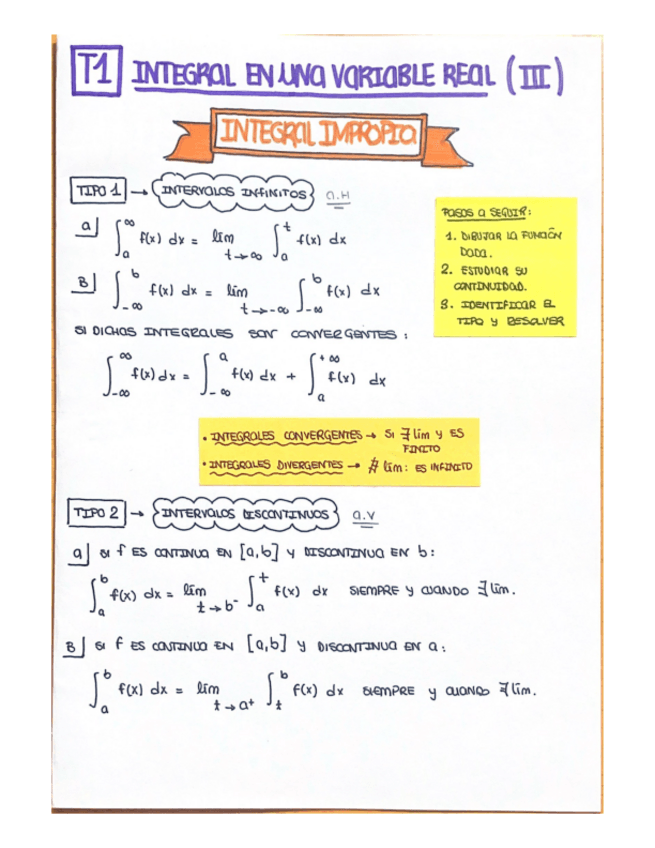 T1 INTEGRAL EN UNA VARIABLE REAL (III)
INTEGRAL IMPROPIA
TIPO 1 → INTERVALOS INFINITOS a.H
a) ∫_a^∞ f(x) dx = lím_{t→∞} ∫_a^t f(x) dx
B) ∫_{-∞}^b f(x) dx = lím_{t→-∞} ∫_{-∞}^b f(x) dx
SI DICHAS INTEGRALES SON CONVERGENTES:
∫_{-∞}^∞ f(x) dx = ∫_{-∞}^a f(x) dx + ∫_a^{+∞} f(x) dx
PASOS A SEGUIR:
1. DIBUJAR LA FUNCIÓN
DADA.
2. ESTUDIAR SU
CONTINUIDAD.
3. IDENTIFICAR EL
TIPO Y RESOLVER
• INTEGRALES CONVERGENTES → SI ∃ lím Y ES
FINITO
• INTEGRALES DIVERGENTES → ∄ lím: ES INFINITO
TIPO 2 → INTERVALOS DISCONTINUOS a.V
a) SI f ES CONTINUA EN [a,b] Y DISCONTINUA EN b:
∫_a^b f(x) dx = lím_{t→b⁻} ∫_a^t f(x) dx SIEMPRE Y CUANDO ∃ lím.
B) SI f ES CONTINUA EN [a,b] Y DISCONTINUA EN a:
∫_a^b f(x) dx = lím_{t→a⁺} ∫_t^b f(x) dx SIEMPRE Y CUANDO ∃ lím.